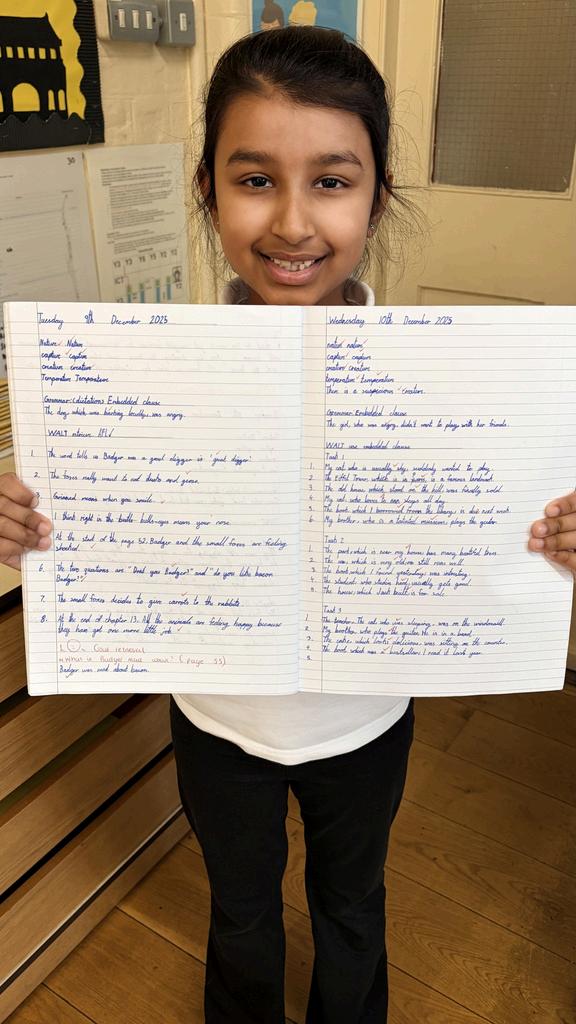 30
Y2 Y3 Y4 Y5 Y6
Tuesday 9th December 2025
Nature Nature
capture capture
creature creature
Temperature Temperature
Grammar: (dictation) Embedded clause
The dog, which was barking loudly, was angry.
WALT retrieve
1. The word tells us Badger was a good digger is 'great digger'.
2. The foxes really want to eat
3. Grinned means when you smile.
I think right in the bulls-eyes means your nose.
At the start of the page 52, Badger and the small foxes are feeling shocked.
6. The two questions are "Don't you Badger?" and "do you like bacon
Badger?"
7. The small foxes decides to give carrots to the rabbits.
8. At the end of chapter 13. All the animals are feeling happy because
they han got one more little job
Good retrieval
What is Badger mad about? (page 55)
Badger was mad about bacon.
Wednesday 10th December 2025
nature nature
capture capture
creature creature
temperature temperature
There is a suspicious creature.
Grammar: Embedded clause
The girl, who was angry, didn't want to play with her friends.
WALT use embedded clause
Task 1
1. My cat who is usually shy, suddenly wanted to play.
2. The Eiffel Tower, which is in paris, is a famous landmark.
3. The old house, which stood on the hill, was finally sold.
4. My cat, who loves to nap, sleeps all day.
5. The book, which I borrowed from the library, is due next week.
6. My brother, who is a talented musician, plays the guitar.
Task 2
1. The park, which is near my house, has many beautiful trees.
2. The car, which is very old, still runs well.
3. The book, which I found yesterday, was interesting.
4. The student, who studies hard, usually gets good.
5. The house, which Jack built, is for sale.
Task 3
1. The cat, who was sleeping, was on the windowsill.
2. My brother, who plays the guitar. He is in a band.
3. The cake, which looks delicious, was sitting on the counter.
4. The book which was a bestseller. I read it last year.
5.